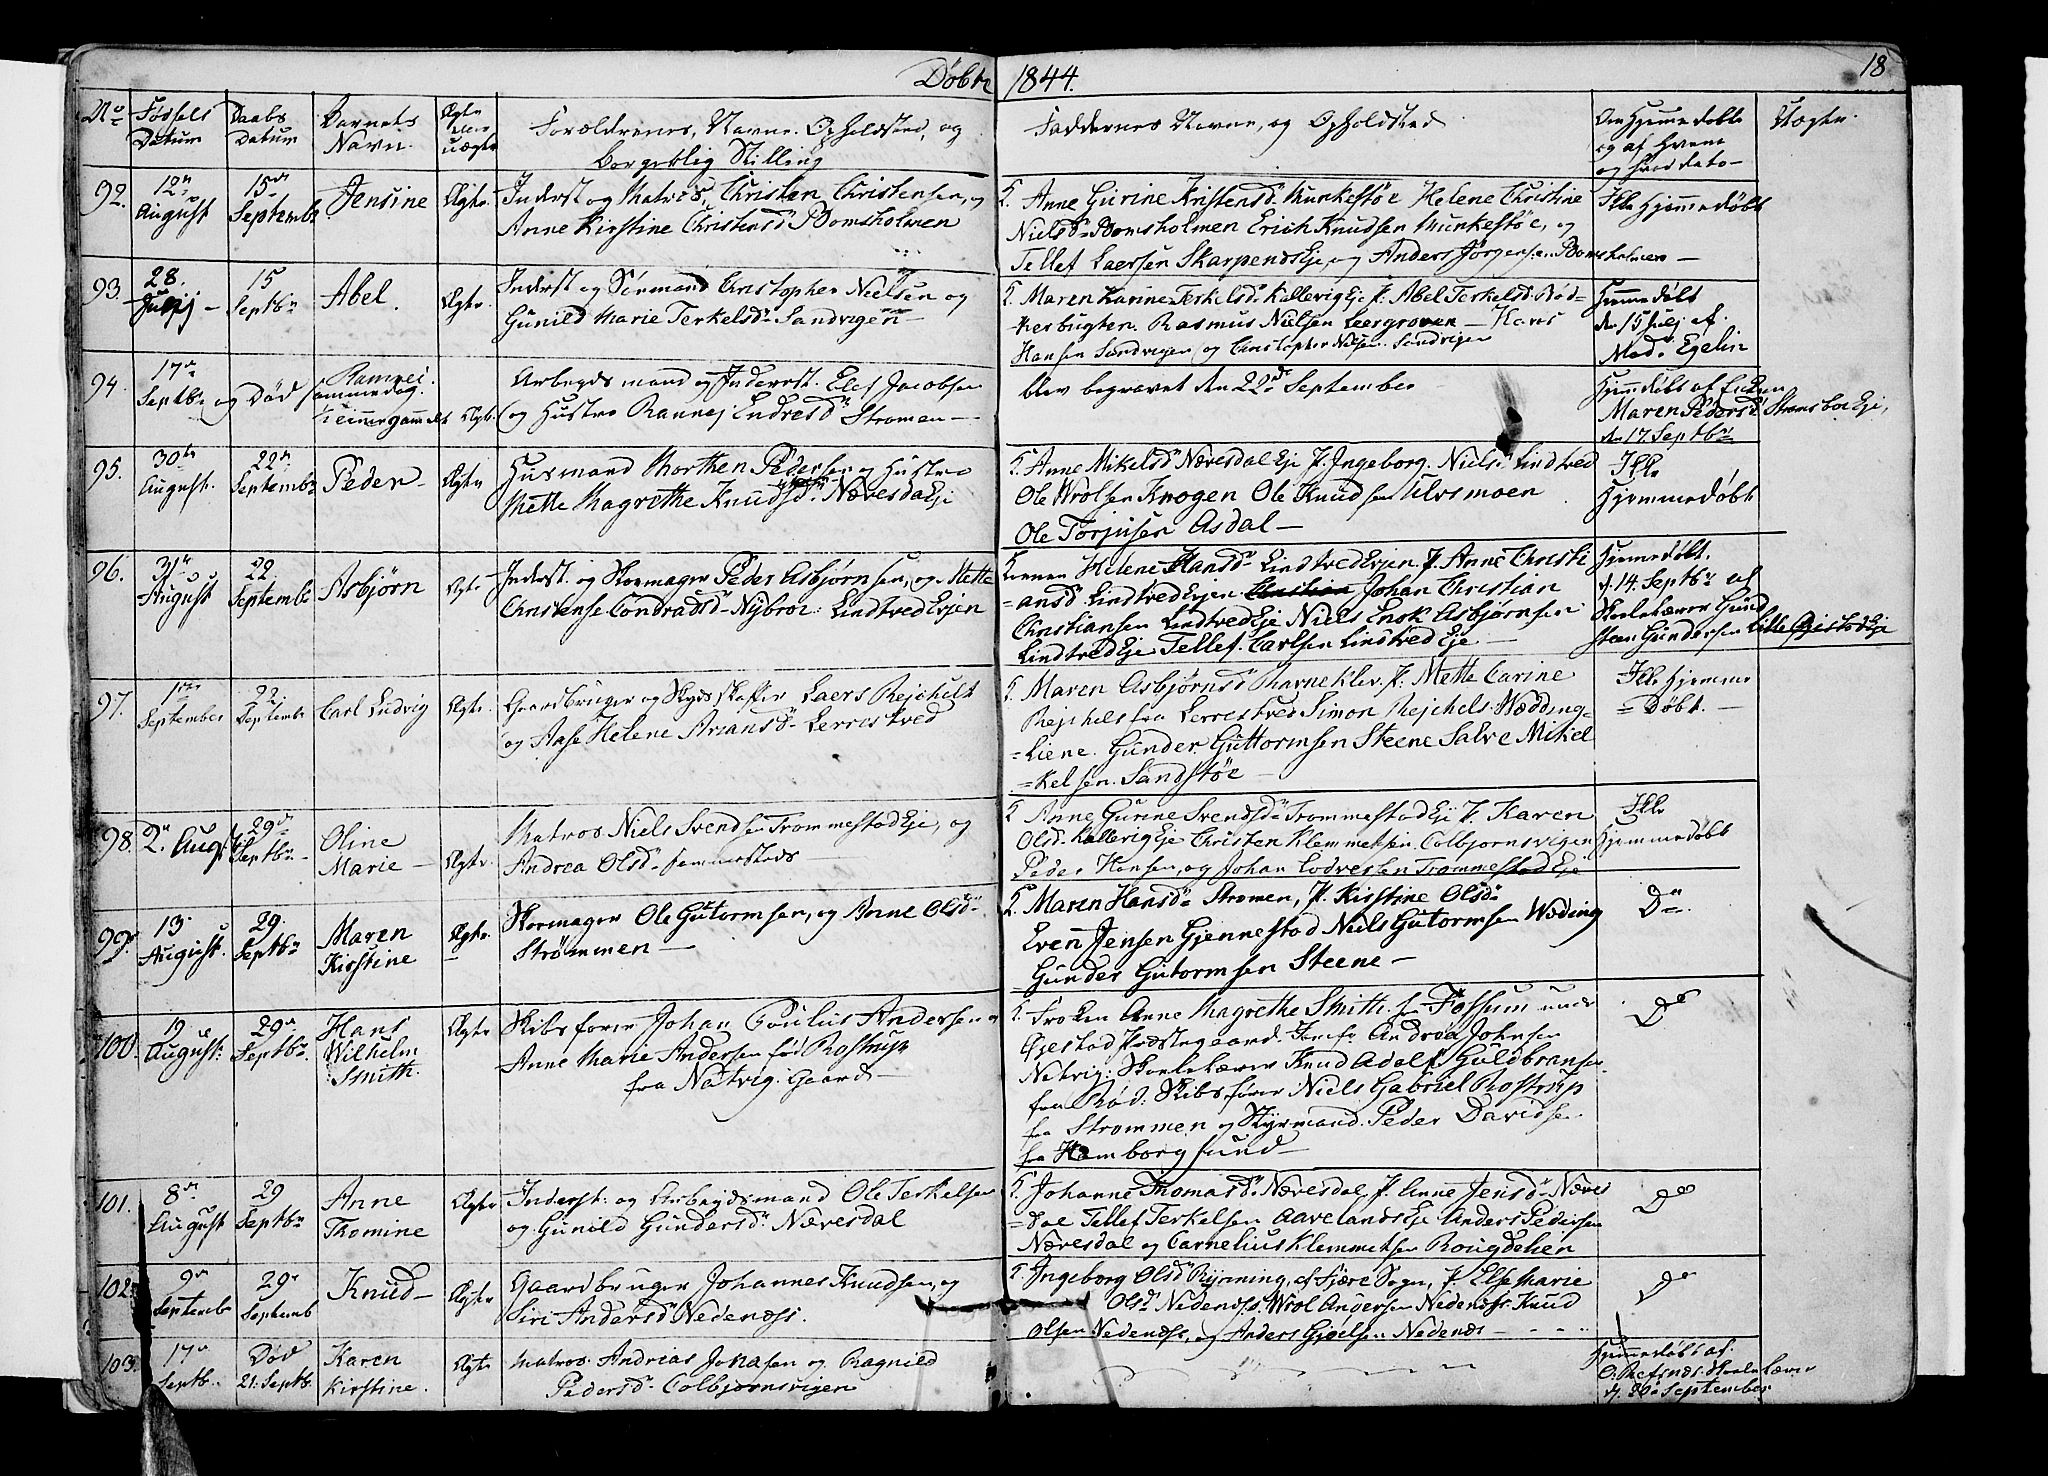 Døbte 1844. 18
No Fødsels Datum Daabs Datum Barnets Navn. Ægte eller uægte Forældrenes, Navne, Opholdsted, og borgerlig Stilling Faddernes Navne, og Opholdsted Om Hjemmedøbte og af hvem og hvad dato
92. 12te August 15de Septembr Jensine Ægte
Inderst og Matros, Christen Christensen, og
Anne Kirstine Christensd Bomsholmen
F. Anne Gurine Kristensd. Munkestøe Helene Christine
Nielsd. Bomsholmen Erich Knudsen Munkestøe, og
Tellef Laersen SkarpendsEje, og Anders Jørgensen Bomsholmen —
Ikke Hjemmedøbt
93. 28. 15 Septbr Abel. Ægte.
Inderst og Sømand Christopher Nielsen og
Gunild Marie Terkelsd Sandvigen
F. Maren Karine Terkelsd. KallevigEje P. Abel Terkelsd. Rød-
kerbugten. Rasmus Nielsen Leergroven — Hans
Hansen Sandvigen og Christopher Nielsen Sandvigen
Hjemmedøbt
den 15 Julj af.
Mad. Egelin
94. 17de Septbr og Død sammedag. Ramnej. Ægte.
Arbeyds mand og Inderst. Elef Jacobsen
og Hustro Rannej Endresd Stromen —
blev begravet den 22de September
Hjemdøbt af Enken
Maren Pedersd StrømsboeEje,
den 17 Septbr
95. 30te August. 22de Septembr Peder — Ægte
Husmand Morthen Pedersen og Hustro
Mette Magrethe Knudsd. NæresdalEje
F. Anne Mikelsd NæresdalEje P. Ingeborg. Niels. Lindtved
Ole Wrolsen Knogen Ole Knudsen Ulvsmoen
Ole Torjusen Asdal —
Ikke
Hjemmedøbt
96. 31te August 22 Septembr Asbjørn Ægte
Inderst. og Skomager Peder Asbjørnsen, og Mette
Christense Condradsd Nybroe: LindtvedEjen
Helene Hansd LindtvedEjen P. Anne Christi
=ansd LindtvedEjen Christian Johan Christian
Christiansen LindtvedEje Niels Ensk Asbjørnsen
LindtvedEje Tellef. Carlsen LindtvedEje —
Hjemmedøbt.
d. 14. Septbr af
Skolelærer Gund
sten Gundersen Lille ØjestadEje
97. 1ste September 22. Septembr Carl Ludvig Ægte.
Gaardbruger og Skydsskaffer Laers Rejchelt
og Aase Helene Ariansd Lerrestved
F. Maren Asbjørnsd Ravneklev. P. Mette Carine
Rejchels fra Lerrestved Simon Rejchels Wædding=
=Liene. Gunder Guttormsen Steene Salve Mikel
=kelsen. Sandstøe —
Ikke Hjemme
=Døbt. —
98. 2de August 29de Septbr. Oline Marie — Ægte.
Matros Niels Svendsen TrommestadEje, og
Andrea Olsd sammesteds —
F. Anne Gurine Svendsd TrommestadEje P. Karen
Olsd. KallevigEje Christen Klemmetsen Colbjørnsvigen
Peder Hansen, og Johan Lodvesen TrommestadEje
Ikke
Hjemmedøbt
99. 13. August. 29. Septbr Maren Kirstine Ægte.
Skomager Ole Gutormsen, og Anne Olsd
Strømmen —
F. Maren Hansd Stromen, P. Kirstine Olsd
Even Jensen Gjennestad Niels Gutormsen Wæding
Gunder Gutormsen Steene —
Do.
100. 19 August. 29de Septbr. Hans Wilhelm Smith. Ægte
Skibsfører Johan Poulus Andersen og
Anne Marie Andersen fød Rostrup
fra Natvig. Gaard —
F. Froken Anne Magrethe Smith. fra Fossum under
Øjestad Præstegaard. Jomfr Andrea Johnsen
Natvig. Skolelærer Knud Adolf Guldbransen
fra Rød. Skibsfører Niels Gabriel Rostrup
fra Strommen og Styrmand. Peder Davidsen.
fra Hamborgsund —
Do
101. 8de August 29 Septbr Anne Thomine Ægte
Inderst. og Arbeydsmand Ole Terkelsen
og Gunild Gundersd. Næresdal
F. Johanne Thomasd. Næresdal, P. Anne Jensd Næres
=dal Tellef Terkelsen AavelandsEje Anders Pedersen
Næresdal og Carnelius Klemmetsen Rougdehen
Do
102. 9de Septemb 29de Septemb Knud — Ægte
Gaardbruger Johannes Knudsen, og
Siri Andersd Nedenæss.
F. Ingeborg Olsd Rynning, af Fjære Sogn, P. Else Marie
Olsd. Nedenæss. Wrol Angersen Nedenæss. Knud
Olsen Nedenæss, og Anders Gjøelsen Nedenæs —
Do
103. 17de Septb. Død 21. Septb. Karen Kirstine. Ægte
Matros. Andreas Jonasen og Ragnild
Pedersd Colbjørnsvigen
Hjemmedøbt af.
O. Refsnes Skolelærer
d. 20. September